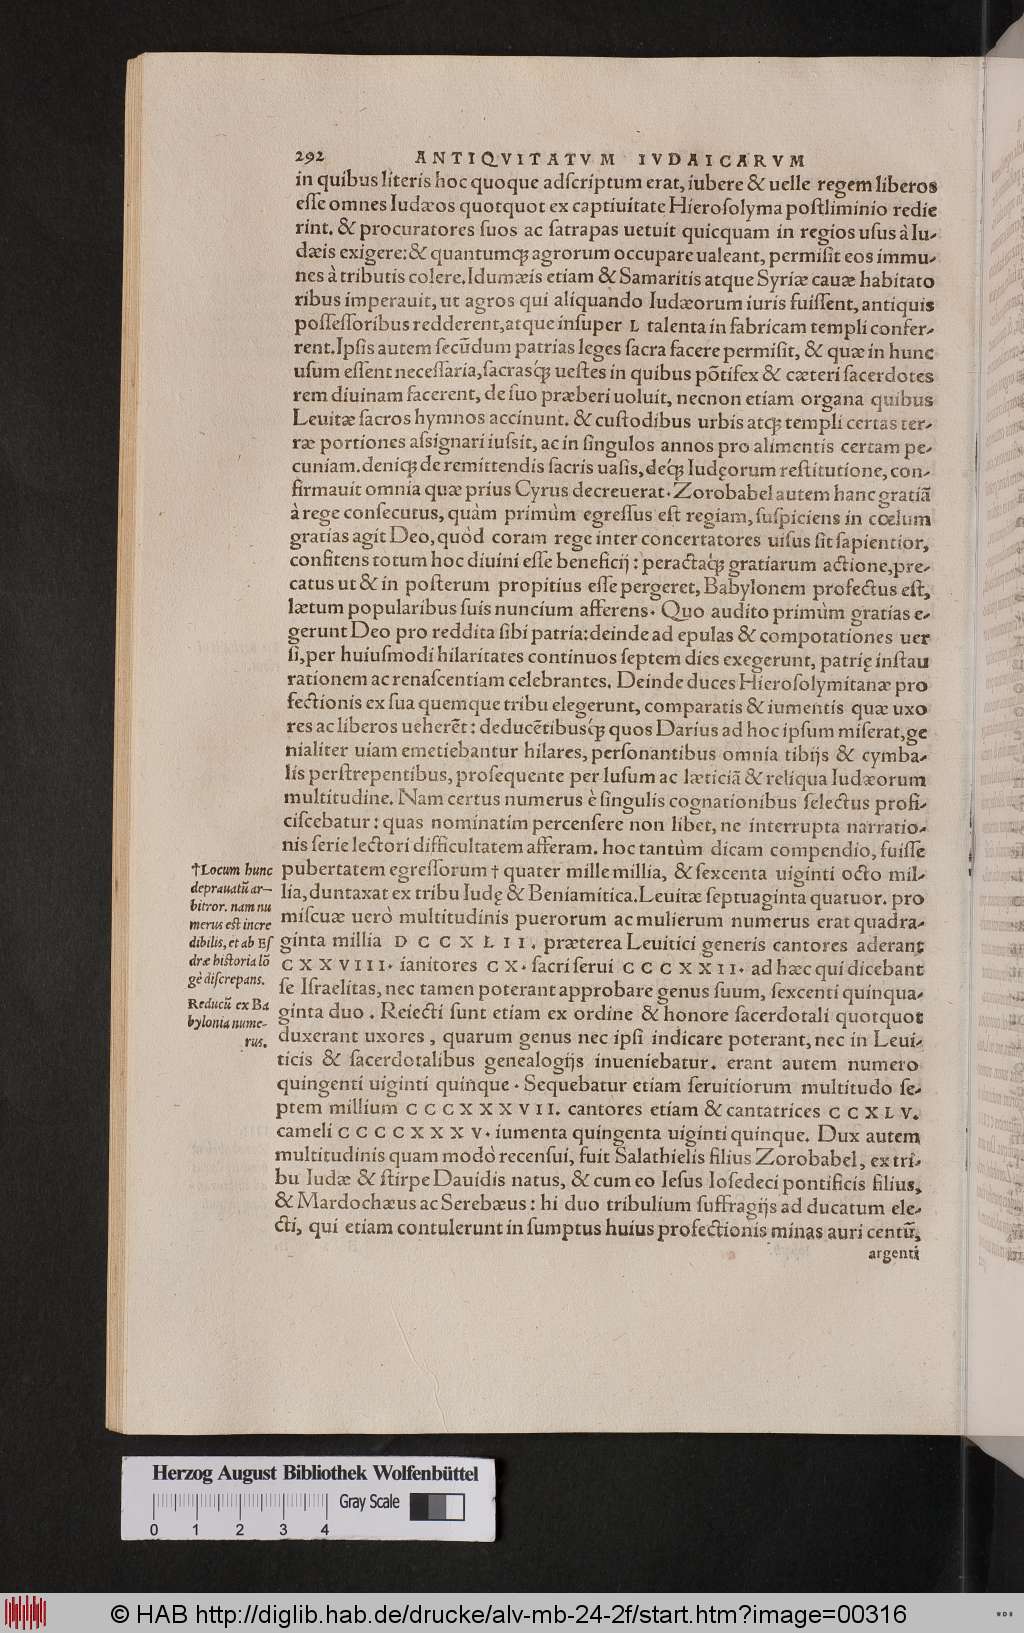 292 ANTIQVITATVM IVDAICARVM
in quibus literis hoc quoque adſcriptum erat, iubere & uelle regem liberos
eſſe omnes Iudæos quotquot ex captiuitate Hieroſolyma poſtliminio redie
rint. & procuratores ſuos ac ſatrapas uetuit quicquam in regios uſus à Iu-
dæis exigere: & quantumq́; agrorum occupare ualeant, permiſit eos immu-
nes à tributis colere. Idumæis etiam & Samaritis atque Syriæ cauæ habitato
ribus imperauit, ut agros qui aliquando Iudæorum iuris fuiſſent, antiquis
poſſeſſoribus redderent, atque inſuper L talenta in fabricam templi confer-
rent. Ipſis autem ſecũdum patrias leges ſacra facere permiſit, & quæ in hunc
uſum eſſent neceſſaria, ſacrasq́; ueſtes in quibus põtifex & cæteri ſacerdotes
rem diuinam facerent, de ſuo præberi uoluit, necnon etiam organa quibus
Leuitæ ſacros hymnos accinunt. & cuſtodibus urbis atq; templi certas ter-
ræ portiones aſsignari iuſsit, ac in ſingulos annos pro alimentis certam pe-
cuniam. deniq; de remittendis ſacris uaſis, deq́; Iudęorum reſtitutione, con-
firmauit omnia quæ prius Cyrus decreuerat. Zorobabel autem hanc gratiã
à rege conſecutus, quàm primùm egreſſus eſt regiam, ſuſpiciens in cœlum
gratias agit Deo, quòd coram rege inter concertatores uiſus ſit ſapientior,
confitens totum hoc diuini eſſe beneficij: peractaq́; gratiarum actione, pre-
catus ut & in poſterum propitius eſſe pergeret, Babylonem profectus eſt,
lætum popularibus ſuis nuncium afferens. Quo audito primùm gratias e-
gerunt Deo pro reddita ſibi patria: deinde ad epulas & compotationes uer
ſi, per huiuſmodi hilaritates continuos ſeptem dies exegerunt, patrię inſtau
rationem ac renaſcentiam celebrantes. Deinde duces Hieroſolymitanæ pro
fectionis ex ſua quemque tribu elegerunt, comparatis & iumentis quæ uxo
res ac liberos ueherẽt: deducẽtibusq́; quos Darius ad hoc ipſum miſerat, ge
nialiter uiam emetiebantur hilares, perſonantibus omnia tibijs & cymba-
lis perſtrepentibus, proſequente per luſum ac læticiã & reliqua Iudæorum
multitudine. Nam certus numerus è ſingulis cognationibus ſelectus profi-
ciſcebatur: quas nominatim percenſere non libet, ne interrupta narratio-
nis ſerie lectori difficultatem afferam. hoc tantùm dicam compendio, fuiſſe
pubertatem egreſſorum † quater mille millia, & ſexcenta uiginti octo mil-
lia, duntaxat ex tribu Iudę & Beniamitica. Leuitæ ſeptuaginta quatuor. pro
miſcuæ uerò multitudinis puerorum ac mulierum numerus erat quadra-
ginta millia DCCXLII. præterea Leuitici generis cantores aderant
CXXVIII. ianitores CX. ſacri ſerui CCCXXII. ad hæc qui dicebant
ſe Iſraelitas, nec tamen poterant approbare genus ſuum, ſexcenti quinqua-
ginta duo. Reiecti ſunt etiam ex ordine & honore ſacerdotali quotquot
duxerant uxores, quarum genus nec ipſi indicare poterant, nec in Leui-
ticis & ſacerdotalibus genealogijs inueniebatur. erant autem numero
quingenti uiginti quinque. Sequebatur etiam ſeruitiorum multitudo ſe-
ptem millium CCCXXXVII. cantores etiam & cantatrices CCXLV.
cameli CCCCXXXV. iumenta quingenta uiginti quinque. Dux autem
multitudinis quam modò recenſui, fuit Salathielis filius Zorobabel, ex tri-
bu Iudæ & ſtirpe Dauidis natus, & cum eo Ieſus Ioſedeci pontificis filius,
& Mardochæus ac Serebæus: hi duo tribulium ſuffragijs ad ducatum ele-
cti, qui etiam contulerunt in ſumptus huius profectionis minas auri centũ,
argenti
†Locum hunc
deprauatũ ar-
bitror. nam nu
merus eſt incre
dibilis, et ab Eſ
dræ hiſtoria lõ
gè diſcrepans.
Reducũ ex Ba
bylonia nume-
rus.
Herzog August Bibliothek Wolfenbüttel
Gray Scale
0 1 2 3 4
© HAB http://diglib.hab.de/drucke/alv-mb-24-2f/start.htm?image=00316